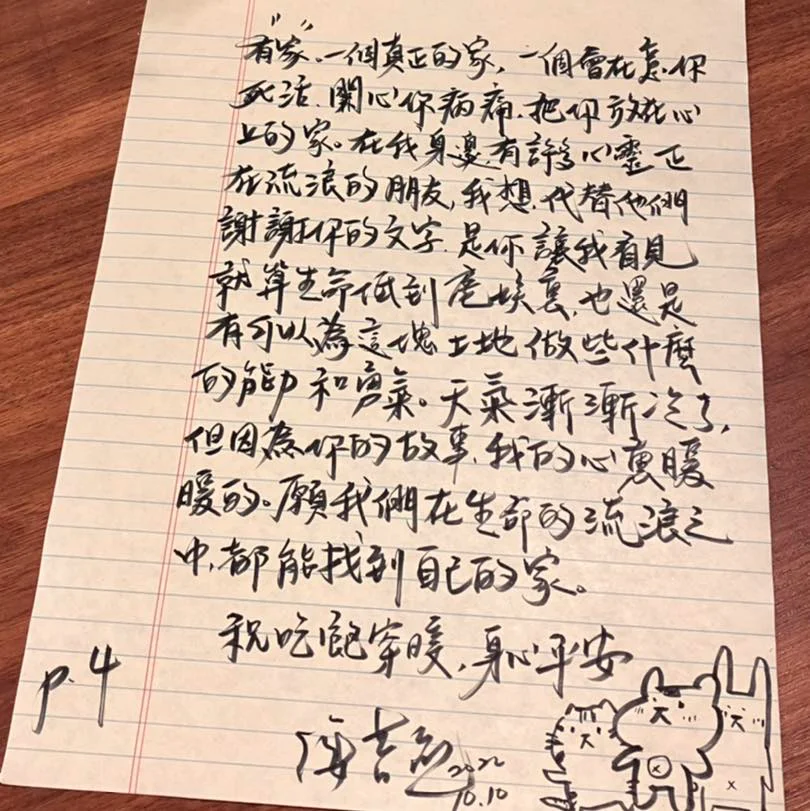 "有家"、一個真正的家，一個會在意你
死活、關心你病痛、把你放在心
上的家。在我身邊，有許多心靈正
在流浪的朋友，我想代替他們
謝謝你的文字，是你讓我看見
就算生命低到塵埃裏，也還是
有可以為這塊土地做些什麼
的能力和勇氣。天氣漸漸冷了，
但因為你的故事，我的心裏暖
暖的。願我們在生命的流浪之
中，都能找到自己的家。
祝吃飽穿暖，身心平安
p.4
吉
2022
10.10